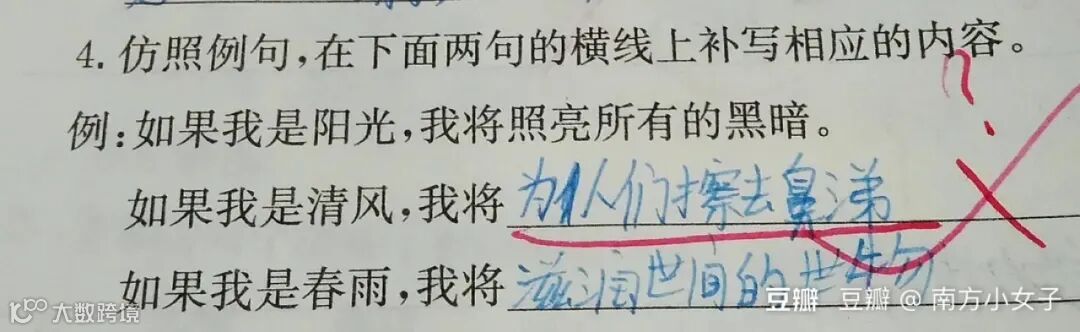 4. 仿照例句，在下面两句的横线上补写相应的内容。
?
例：如果我是阳光，我将照亮所有的黑暗。
如果我是清风，我将为人们擦去鼻涕
如果我是春雨，我将滋润世间的
大数跨境
豆瓣 豆瓣@南方小女子